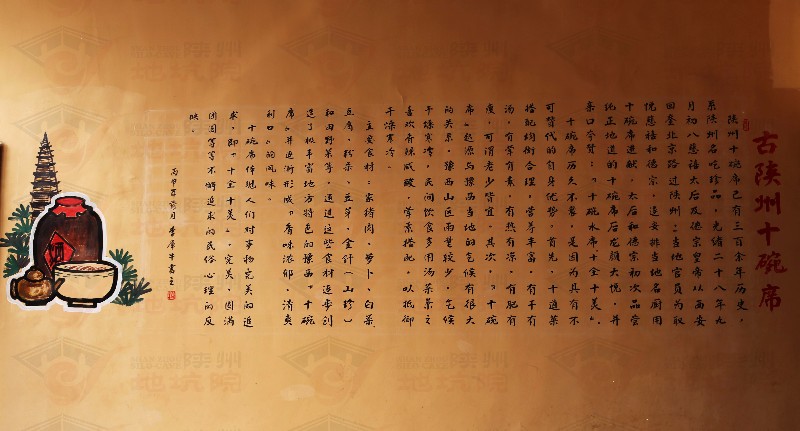 古陕州十碗席
陕州十碗席已有三百余年历史，
系陕州名吃珍品，光绪二十八年九
月初八慈禧太后及德宗皇帝从西安
回銮北京路过陕州。当地官员为取
悦慈禧和德宗，遂安排当地名厨用
十碗席进献，太后和德宗初次品尝
纯正地道的十碗席后龙颜大悦，并
亲口夸赞：“十碗水席十全十美”。
十碗席历久不衰，是因为具有不
可替代的自身优势，首先，十道菜
搭配均衡合理，营养丰富，有干有
汤，有荤有素，有热有凉，有肥有
瘦，可谓老少皆宜，其次，“十碗
席”起源与豫西当地的气候有很大
的关系，豫西山区雨量较少，气候
干燥寒冷，民间饮食多用汤菜
喜欢香辣咸酸，荤素搭配，以抵御
干燥寒冷。
主要食材：家猪肉、萝卜、白菜、
豆腐、粉条、豆芽、金针（山珍）
和田野菜等，通过这些食材逐步创
造了极丰富地方特色的豫西“十碗
席”并逐渐形成“香味浓郁，清爽
利口”的风味。
十碗席体现人们对事物完美的追
求，即“十全十美”，完美、圆满
团团等等不懈追求的民俗心理的反
映。
丙申
酒
陕州
地坑院